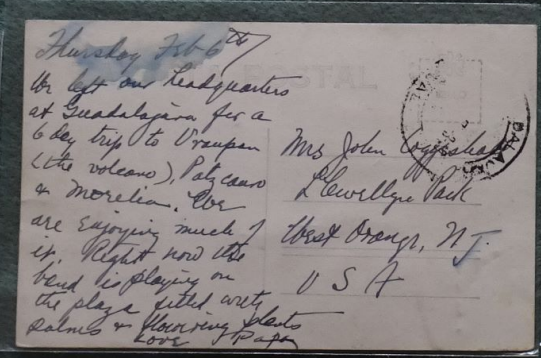 Thursday Feb 6th/
We left our headquarters
at Guadalajara for a
6 day trip to Uruapan
(the volcano), Patzcuaro
& Morelia. We
are enjoying much of
it. Right now the
band is playing on
the plaza filled with
palms & flowering plants
Love Papa
POSTAL
Mrs John Coggeshall
Llewellyn Park
West Orange, N J.
U S A